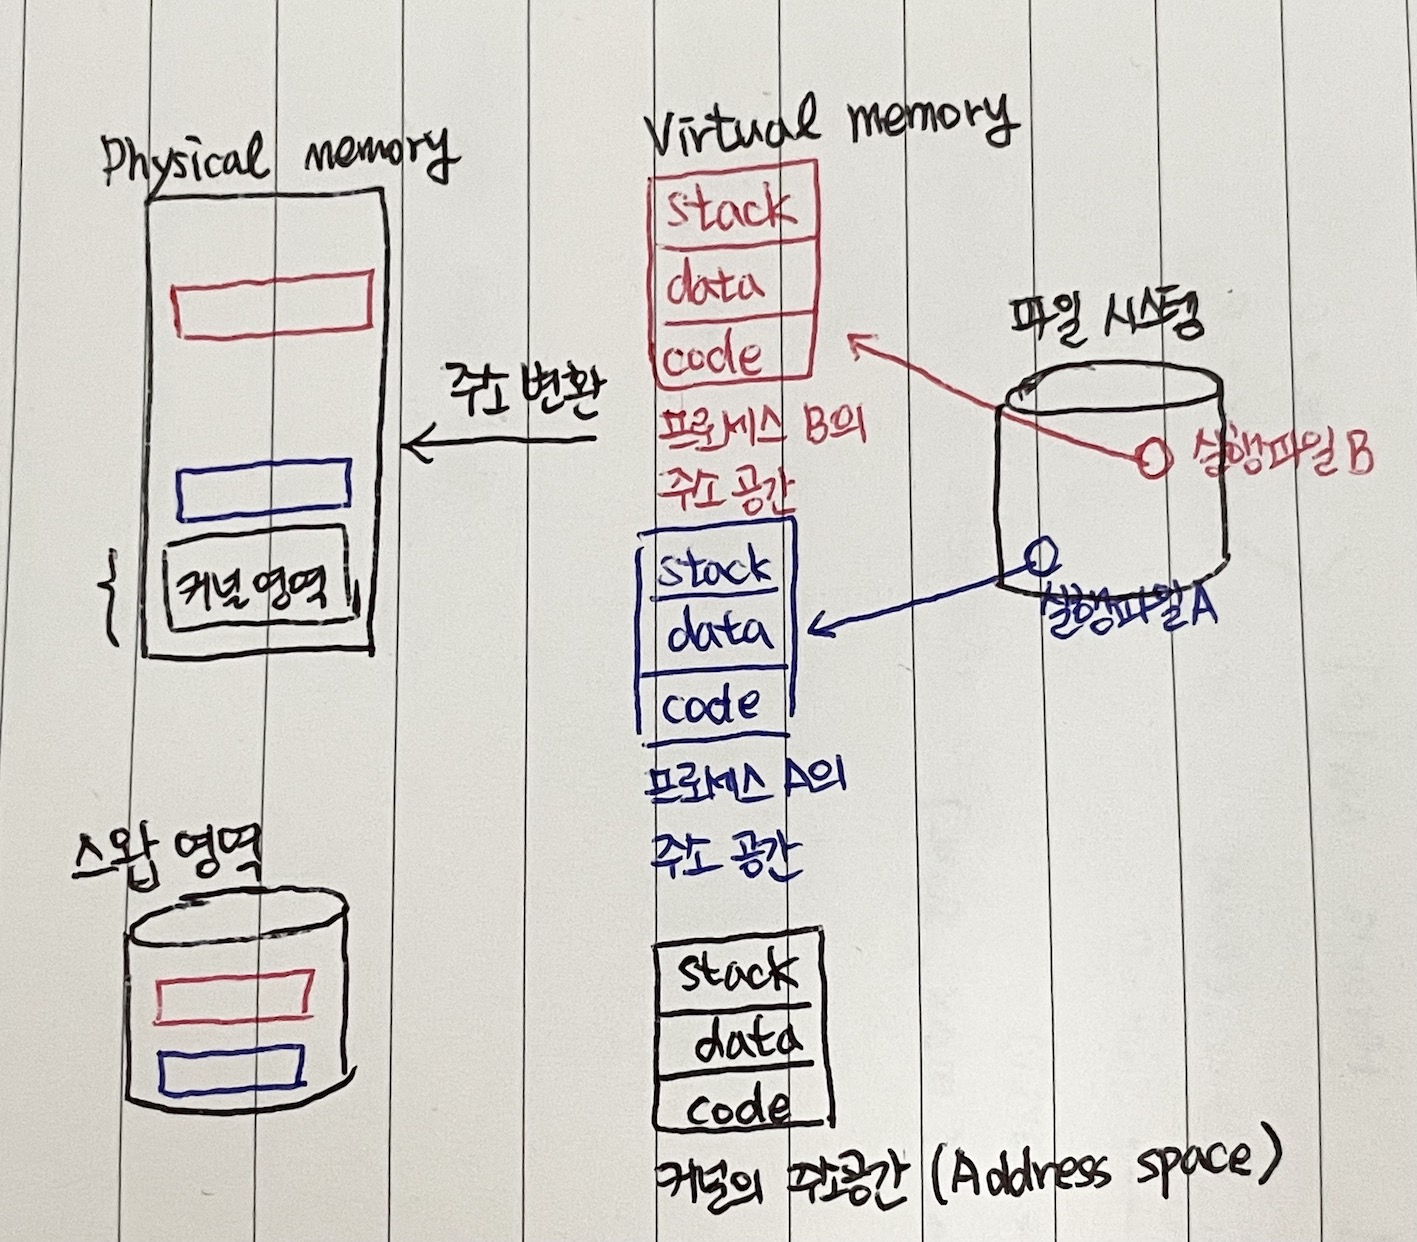 Physical memory
Virtual memory
stack
data
code
프로세스 B의
주소 공간
파일 시스템
실행파일 B
주소 변환
stack
data
code
실행파일 A
프로세스 A의
주소 공간
커널 영역
스왑 영역
stack
data
code
커널의 주소공간 (Address space)